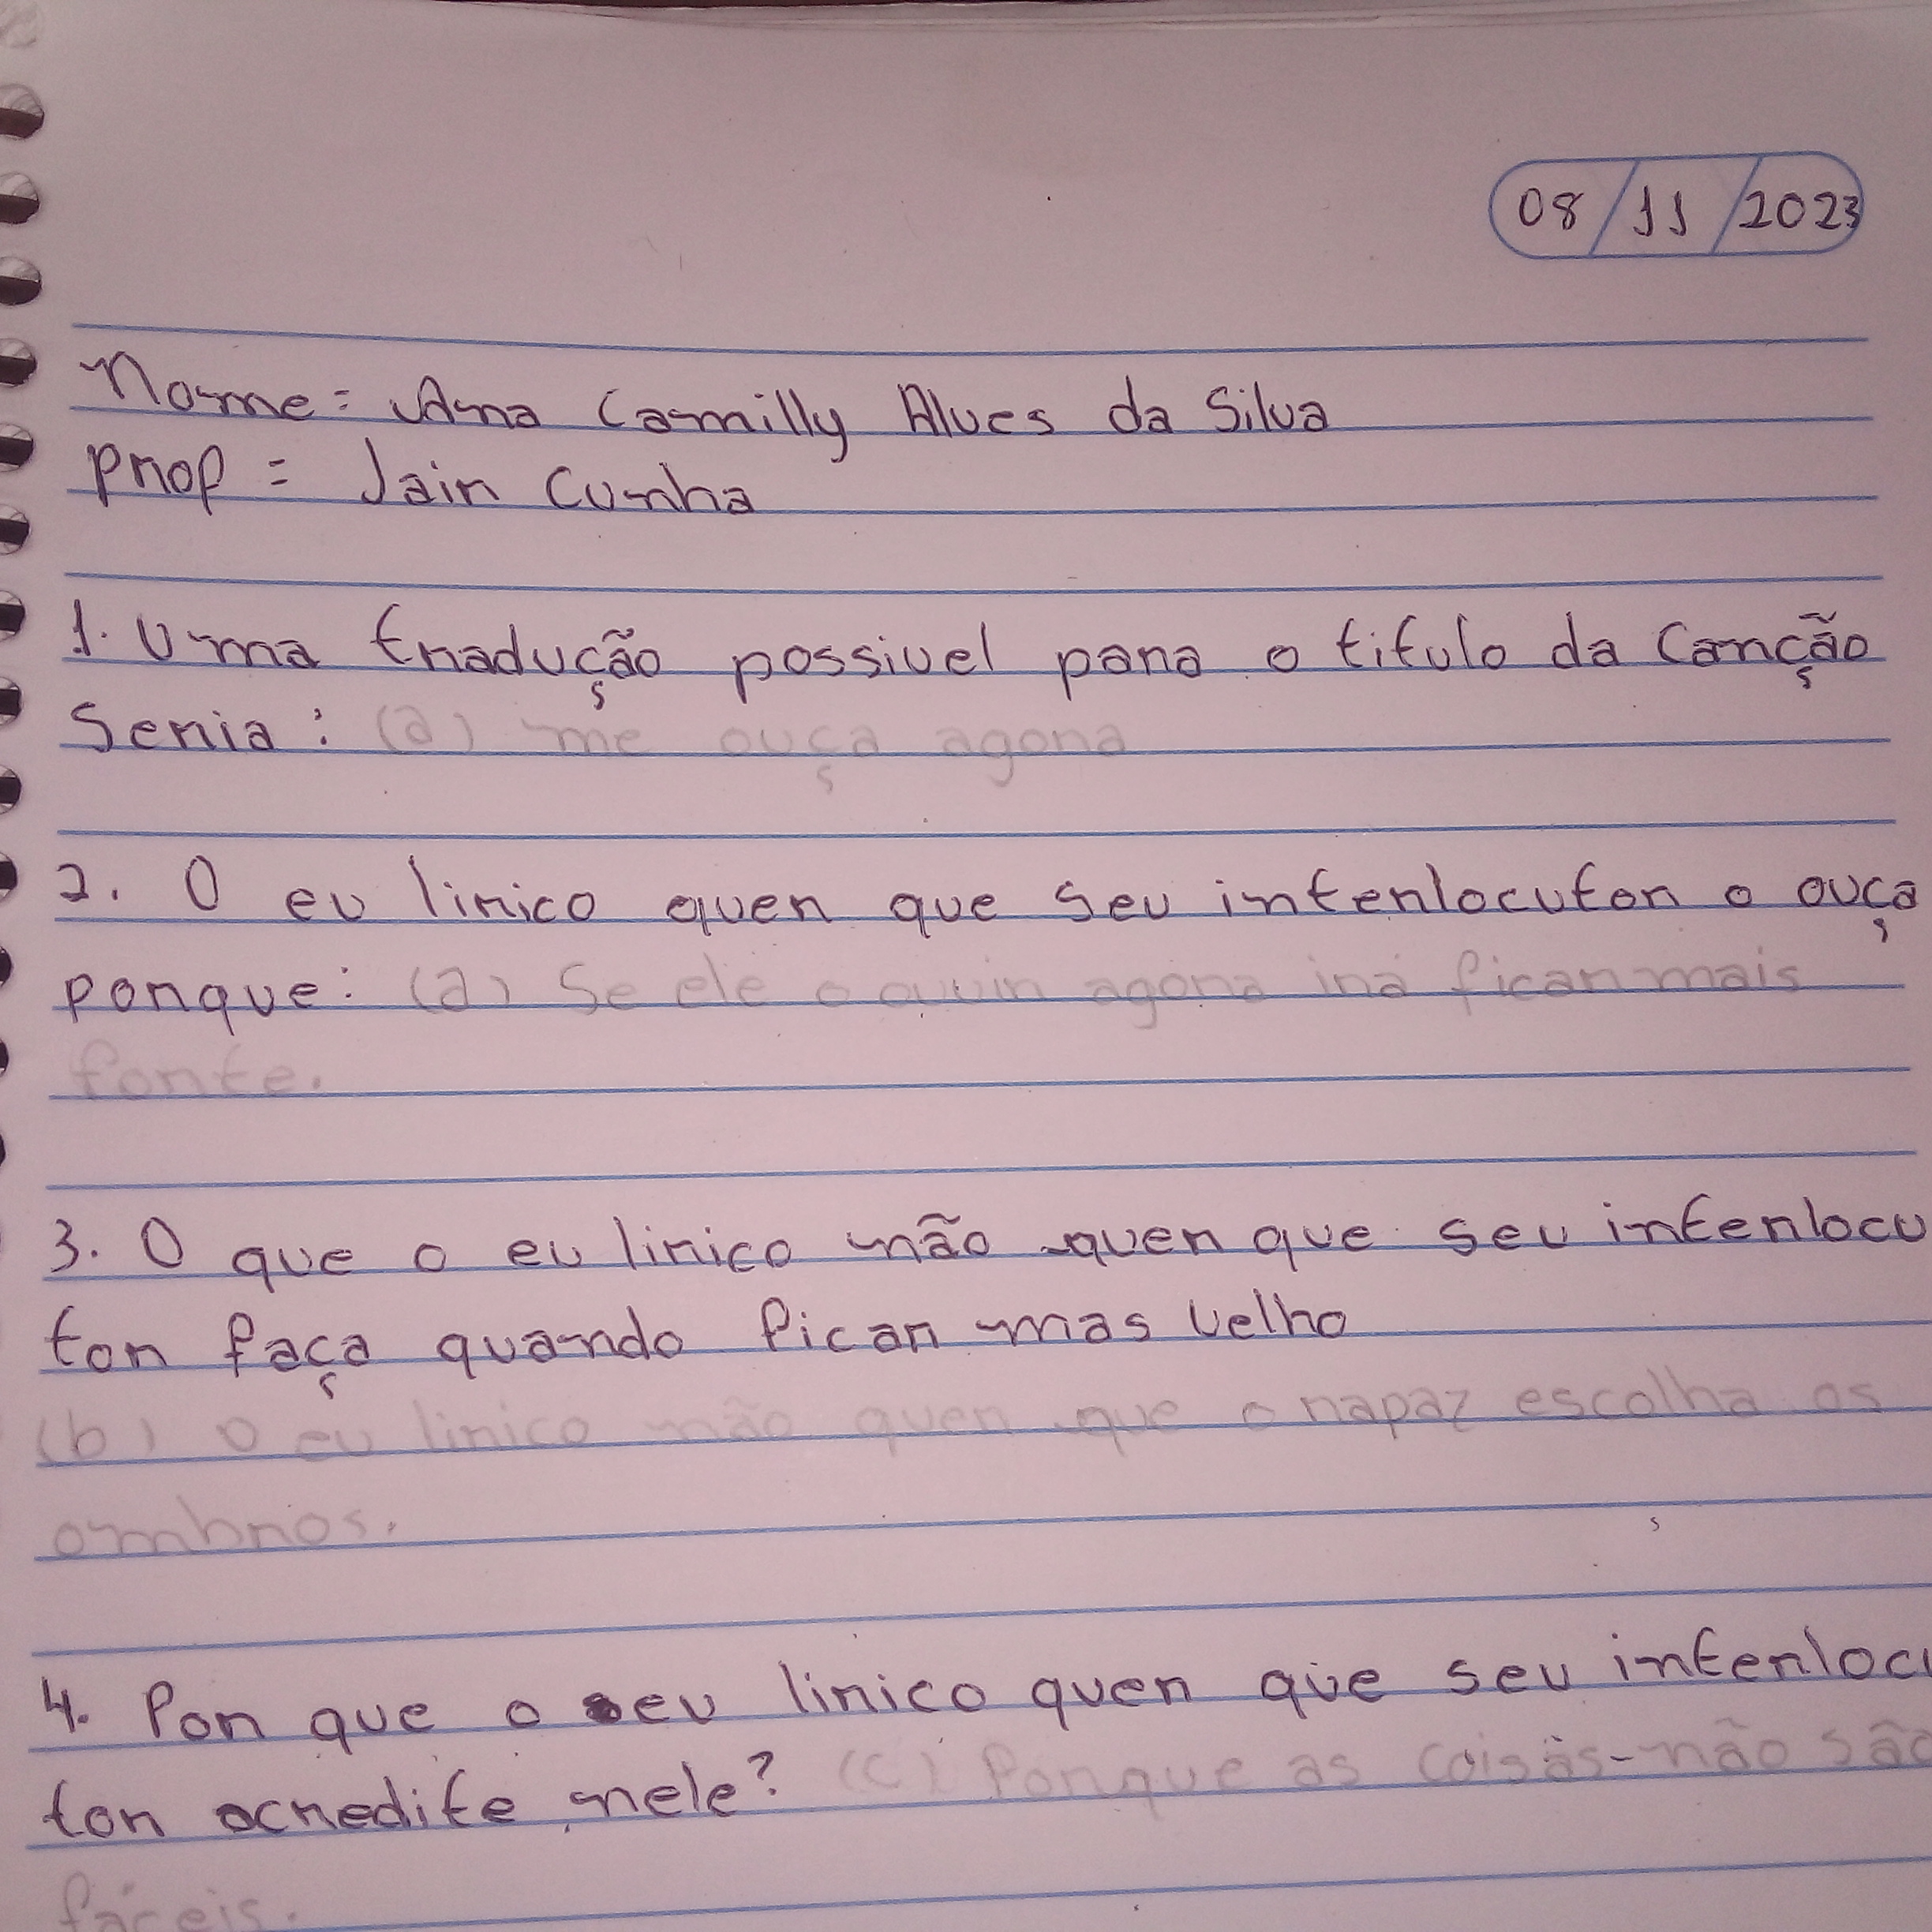 08/11/2023
Nome = Ana Camilly Alves da Silva
prof = Jair Cunha
1. Uma tradução possivel para o titulo da Canção
Seria: (a) me ouça agora
2. O eu lirico quer que seu interlocutor o ouça
porque: (a) Se ele o ouvir agora irá ficar mais
forte.
3. O que o eu lirico não quer que seu interlocu
tor faça quando ficar mas velho
(b) O eu lirico não quer que o rapaz escolha os
ombros.
4. Por que o eu lirico quer que seu interlocu
tor acredite nele? (c) Porque as coisas não são
fáceis.